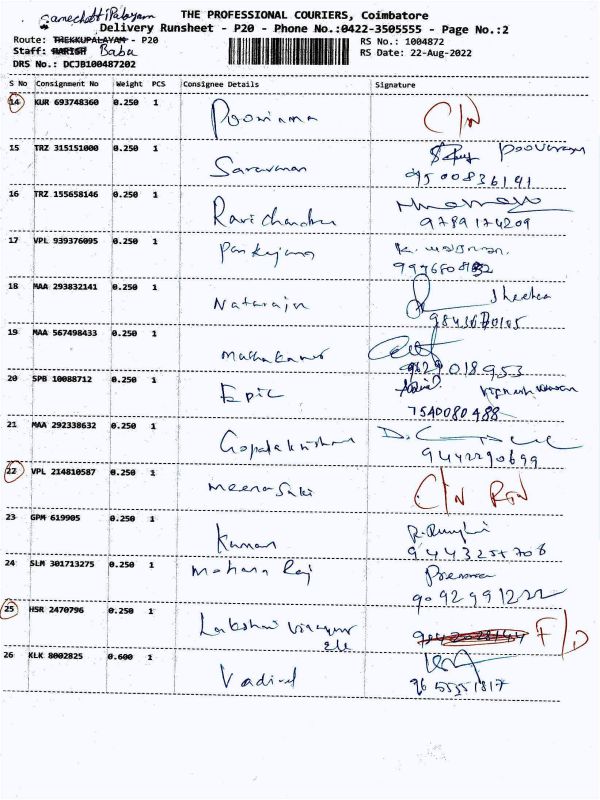 Samechetti Palayam
THE PROFESSIONAL COURIERS, Coimbatore
Delivery Runsheet - P20 - Phone No.:0422-3505555 - Page No.:2
Route: THEKKUPALAYAM - P20
RS No.: 1004872
Staff: HARISH Babu
RS Date: 22-Aug-2022
DRS No.: DCJB100487202
S No Consignment No Weight PCS Consignee Details Signature
14 KUR 693748360 0.250 1 Poornima C/N
15 TRZ 315151000 0.250 1 Saravanan
9500836191
16 TRZ 155658146 0.250 1 Ravichandra
9789174209
17 VPL 939376095 0.250 1 Pankajam
18 MAA 293832141 0.250 1 Natarajn
19 MAA 567498433 0.250 1
018953
20 SPB 10088712 0.250 1 Epic
7540080488
21 MAA 292338632 0.250 1 Gopalakrishnan
9442290699
22 VPL 214810587 0.250 1 Meenasaki C/N RTN
23 GPM 619905 0.250 1 Kannan
24 SLM 301713275 0.250 1 Mohana Raj Prema
9092991222
25 HSR 2470796 0.250 1 Lakshmi Vinayagar F/D
ele
26 KLK 8002825 0.600 1 Vadivel